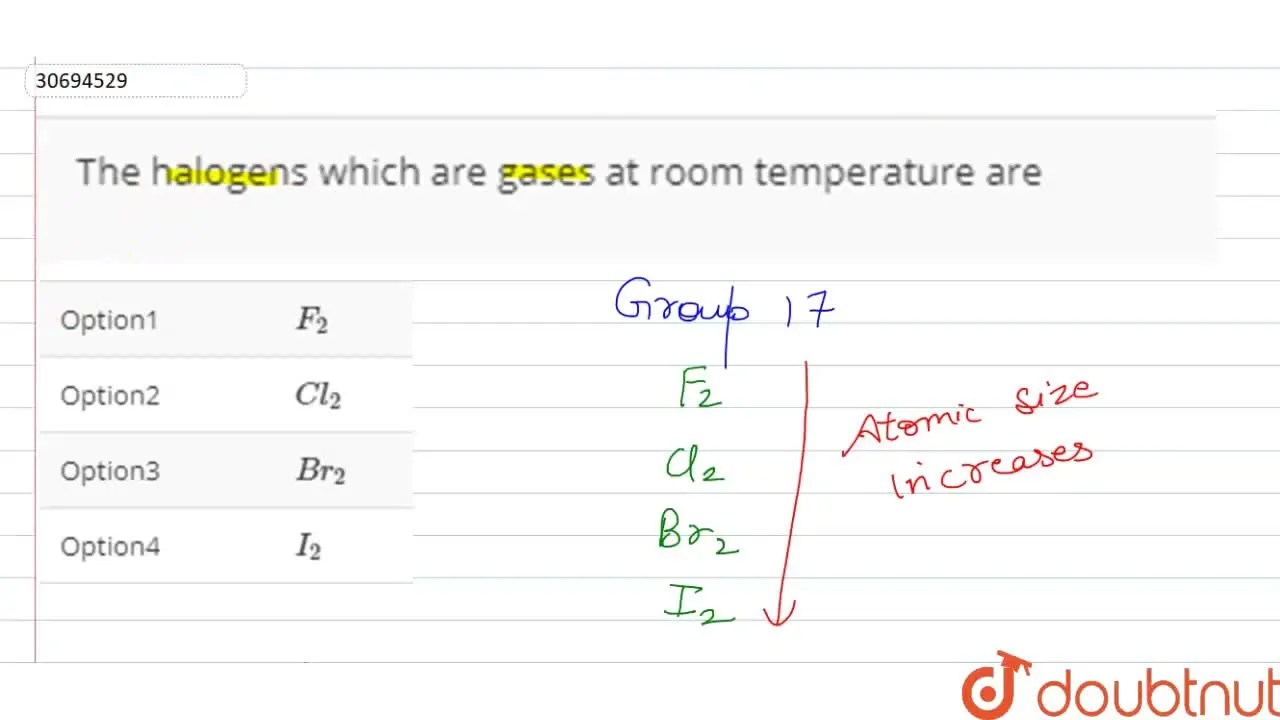 30694529
The halogens which are gases at room temperature are
Option1 F₂
Option2 Cl₂
Option3 Br₂
Option4 I₂
Group 17
F₂
Cl₂
Br₂
I₂
Atomic size
increases
doubtnut